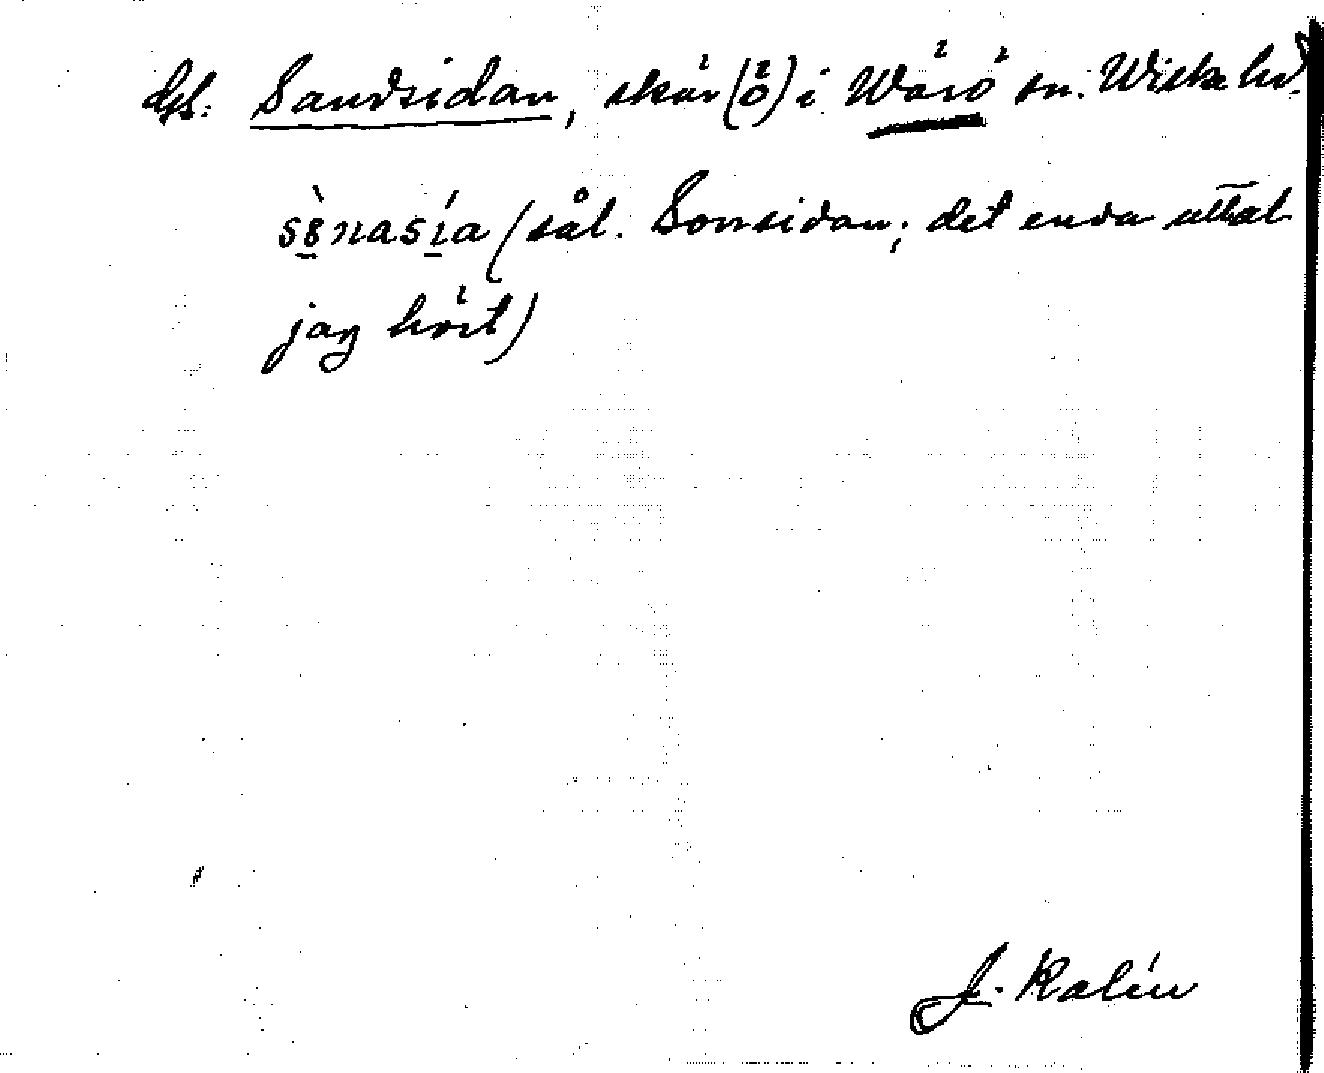 Sandsidan, skär (ö) i Wärö sn. Wiske hd.
sȣ̀nasía (sål. Sonsidan; det enda uttal
jag hört)
J. Kalén